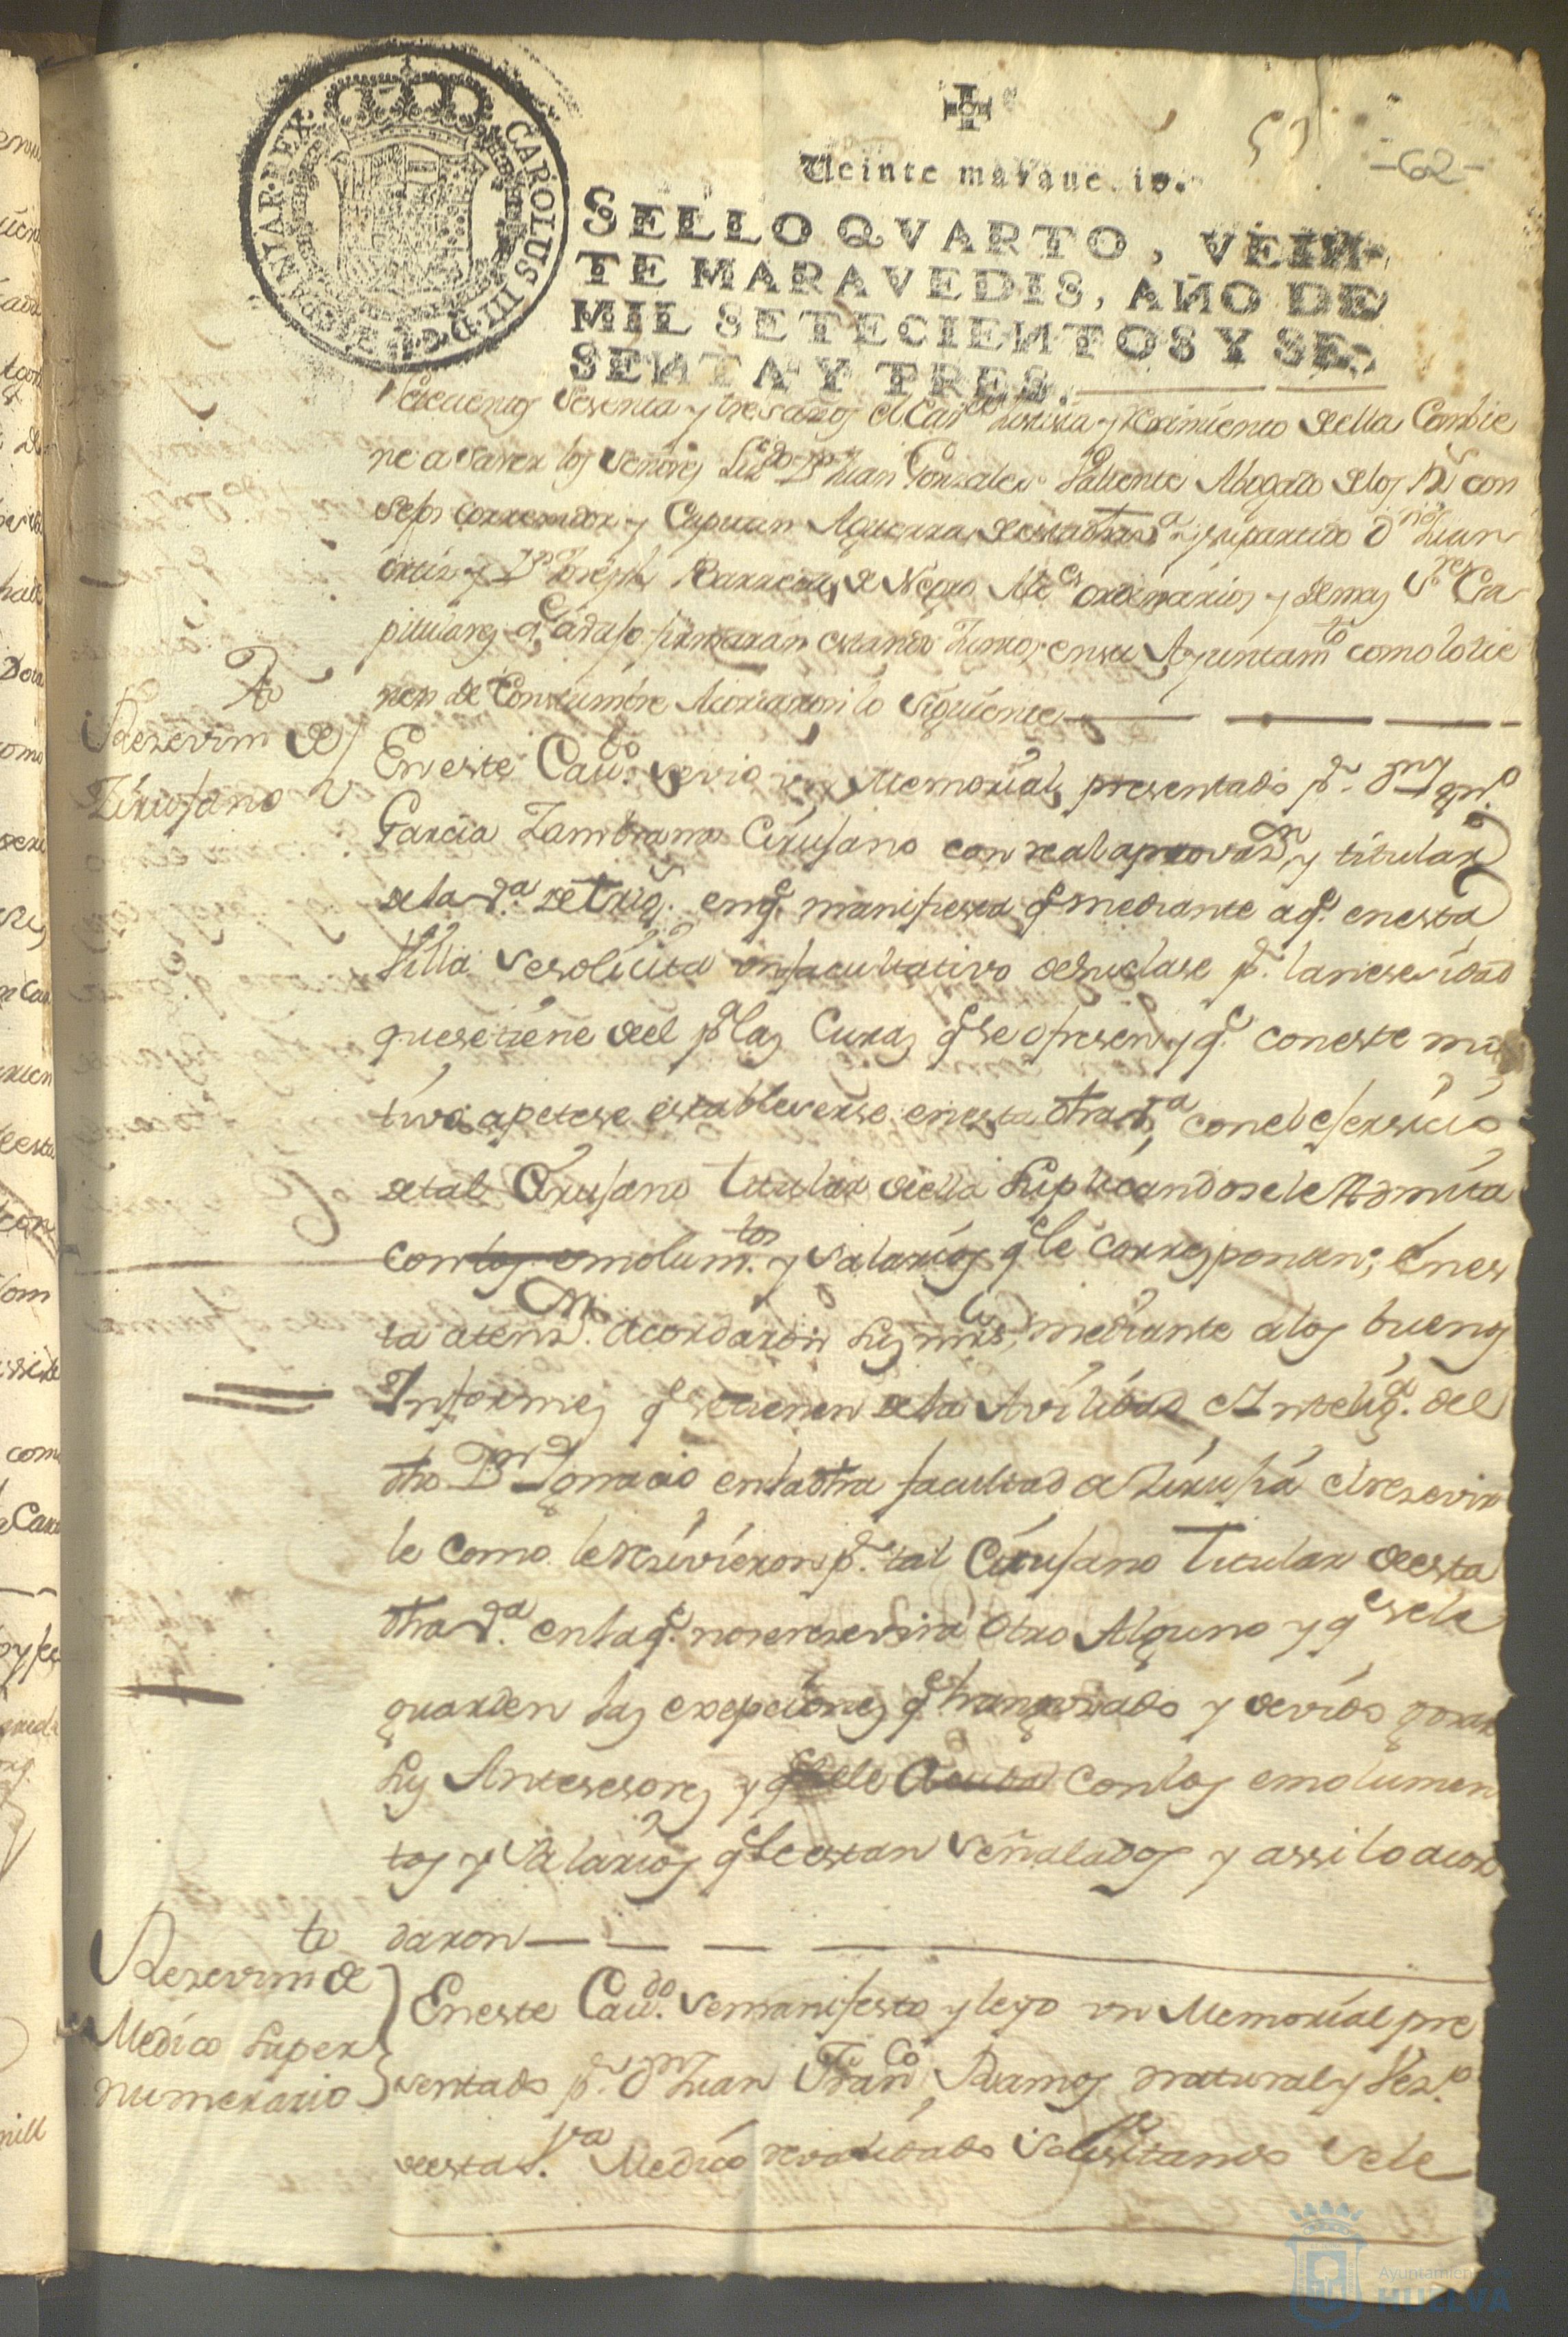 CAROLUS III D. G. HISPANIAR. REX.
51
-62-
Veinte maravedis.
SELLO QVARTO, VEIN-
TE MARAVEDIS, AÑO DE
MIL SETECIENTOS Y SE-
SENTA Y TRES.
setecientos sesenta y tres años el Cav.do Justicia y rexmiento della Combie
ne a saver los señores Lizdo Dn Juan Gonzalez Valiente Abogado delos Rs con
sejos correxidor y Capitan Aguerra de esta dha va y supartido Dn Juan
ortiz y Dn Joseph Barreda de Negro Alces ordinarios y demas Sres Ca
pitulares qe avaso firmaran estando Juntos ensu Ayuntamto como lotie
nen de Constumbre Acordaron lo siguiente
Resevimto de
Zirusano
En este Cavdo se vio un Memorial presentado pr Dn Ygno
Garcia Zambrano Cirusano con real aprovazn y titular
dela va de Trigs. enqe manifiesta qe mediante aqe enesta
Villa se solicita un facultativo desuclase pr lanesesidad
quesetiene del pa las Curas qe se ofresen y qe coneste mo
tivo apetese estableserse enesta dha va conel esersicio
detal Cirusano titular della Suplicandosele Admita
conlos emolumtos y salarios qe le corresponden; Enes
ta atenzn acordaron sus mrds, mediante alos buenos
Informes qe setienen dela Avilidad e Inteliga del
dho Dn Ignacio enladha facultad de Zirusia el resevir
le como le resivieron pr tal Cirusano Titular deesta
dha va enlaqe nose resevira otro Alguno y qe sele
guarden las exepciones qe han gosado y devido gosar
sus Antesesores y qe sele Acuda conlos emolumen
tos y salarios qe le estan señalados y assi lo acor
daron
Resevimto de
Medico super
numerario
Eneste Cavdo semanifesto y leyo un Memorial pre
sentado pr Dn Juan Franco Ramos natural y Vezo
deesta va Medico revalidado solisitando sele
Ayuntamiento de
HUELVA